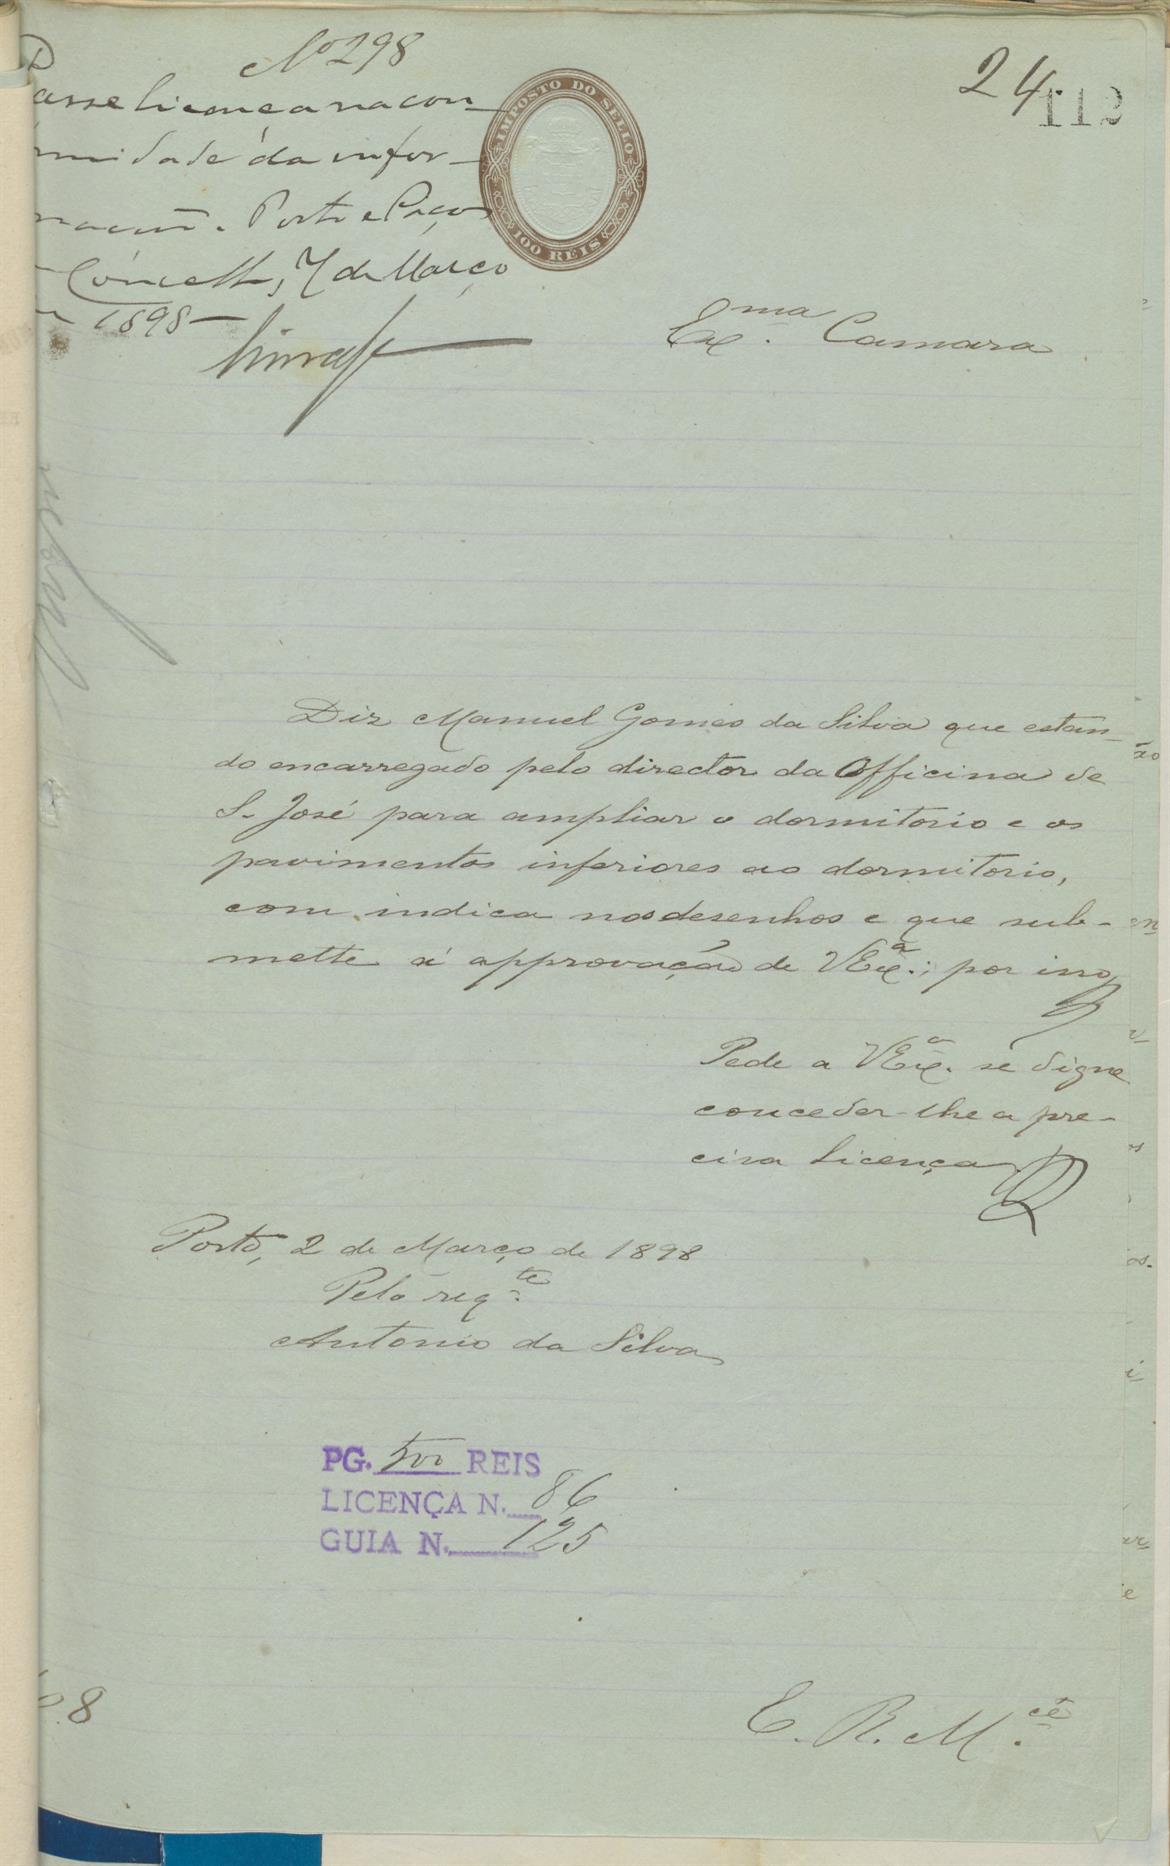 Nº 298
24
112
Passe licença na con-
midade da infor-
mação. Porto e Paços
Concelho, 7 de Março
1898
IMPOSTO DO SELLO
100 REIS
Exma. Camara
Diz Manuel Gomes da Silva que estan-
do encarregado pelo director da Officina de
S. José para ampliar o dormitorio e os
pavimentos inferiores ao dormitorio,
com indica nos desenhos e que sub-
mette á approvação de VExª.; por isso
Pede a VExª. se digne
conceder-lhe a pre-
cisa licença
Porto, 2 de Março de 1898
Pelo reqte.
Antonio da Silva
PG. 500 REIS
LICENÇA N. 86
GUIA N. 125
8
E. R. Mcê.